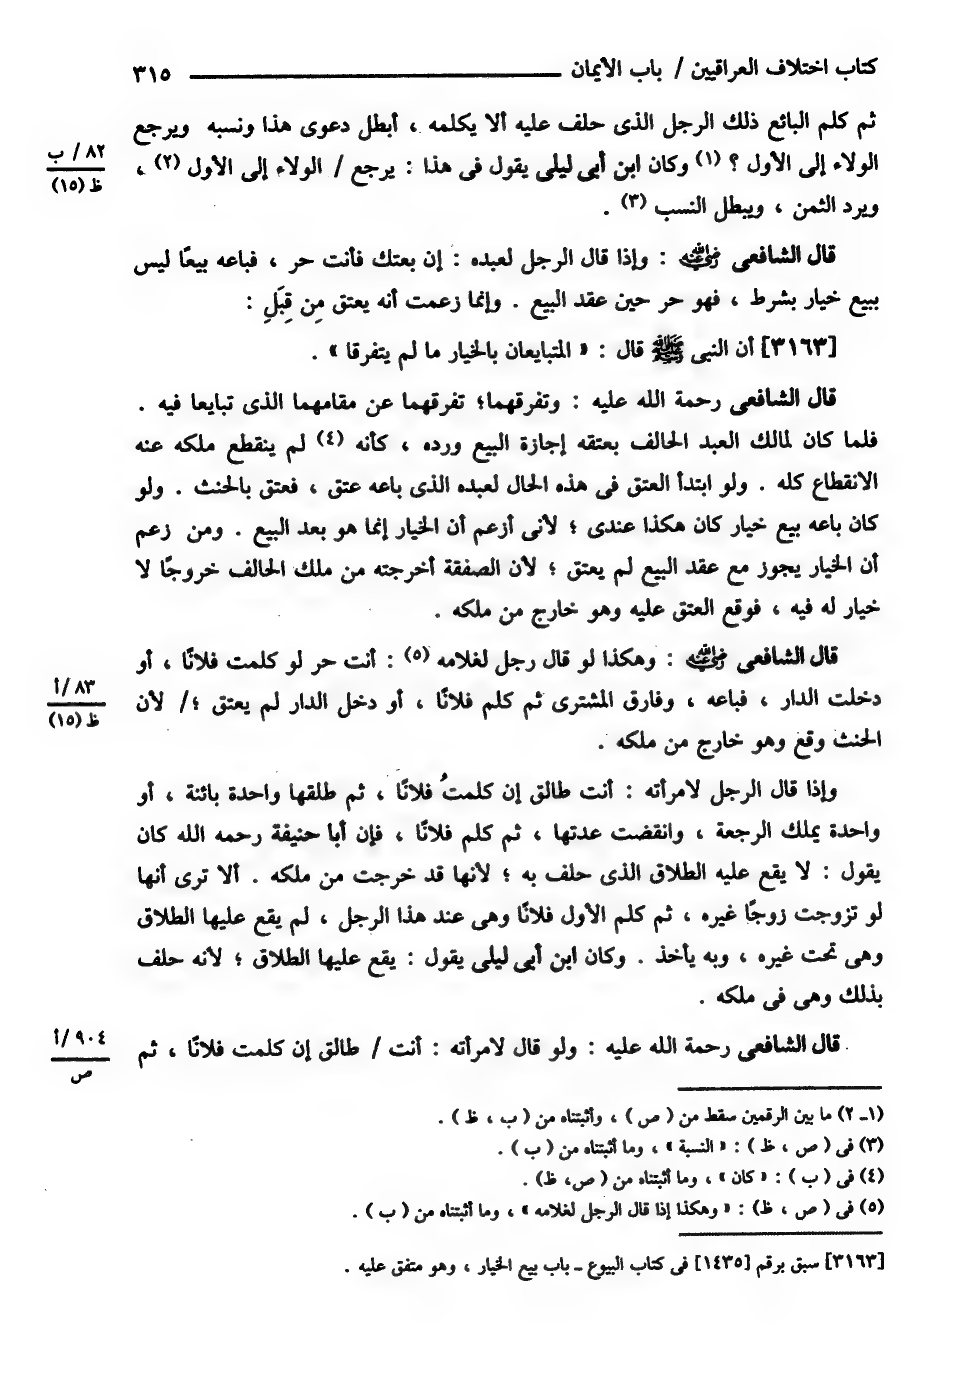 كتاب اختلاف العراقيين / باب الأيمان ٣١٥
ثم كلم البائع ذلك الرجل الذى حلف عليه ألا يكلمه ، أبطل دعوى هذا ونسبه ويرجع
الولاء إلى الأول ؟ (١) وكان ابن أبى ليلى يقول فى هذا : يرجع / الولاء إلى الأول (٢) ،
٨٢ / ب
ظ (١٥)
ويرد الثمن ، ويبطل النسب (٣) .
قال الشافعى رضي الله عنه : وإذا قال الرجل لعبده : إن بعتك فأنت حر ، فباعه بيعًا ليس
ببيع خيار بشرط ، فهو حر حين عقد البيع . وإنما زعمت أنه يعتق مِن قِبَلِ :
[٣١٦٣] أن النبى ﷺ قال : « المتبايعان بالخيار ما لم يتفرقا » .
قال الشافعى رحمة الله عليه : وتفرقهما؛ تفرقهما عن مقامهما الذى تبايعا فيه .
فلما كان لمالك العبد الحالف بعتقه إجازة البيع ورده ، كأنه (٤) لم ينقطع ملكه عنه
الانقطاع كله . ولو ابتدأ العتق فى هذه الحال لعبده الذى باعه عتق ، فعتق بالحنث . ولو
كان باعه بيع خيار كان هكذا عندى ؛ لأنى أزعم أن الخيار إنما هو بعد البيع . ومن زعم
أن الخيار يجوز مع عقد البيع لم يعتق ؛ لأن الصفقة أخرجته من ملك الحالف خروجًا لا
خيار له فيه ، فوقع العتق عليه وهو خارج من ملكه .
قال الشافعى رضي الله عنه : وهكذا لو قال رجل لغلامه (٥) : أنت حر لو كلمت فلانًا ، أو
دخلت الدار ، فباعه ، وفارق المشترى ثم كلم فلانًا ، أو دخل الدار لم يعتق ؛/ لأن
٨٣ /أ
ظ (١٥)
الحنث وقع وهو خارج من ملكه .
وإذا قال الرجل لامرأته : أنت طالق إن كلمتُ فلانًا ، ثم طلقها واحدة بائنة ، أو
واحدة يملك الرجعة ، وانقضت عدتها ، ثم كلم فلانًا ، فإن أبا حنيفة رحمه الله كان
يقول : لا يقع عليه الطلاق الذى حلف به ؛ لأنها قد خرجت من ملكه . ألا ترى أنها
لو تزوجت زوجًا غيره ، ثم كلم الأول فلانًا وهى عند هذا الرجل ، لم يقع عليها الطلاق
وهى تحت غيره ، وبه يأخذ . وكان ابن أبى ليلى يقول : يقع عليها الطلاق ؛ لأنه حلف
بذلك وهى فى ملكه .
قال الشافعى رحمة الله عليه : ولو قال لامرأته : أنت / طالق إن كلمت فلانًا ، ثم
٩٠٤ /أ
ص
(١ـ ٢) ما بين الرقمين سقط من ( ص ) ، وأثبتناه من ( ب ، ظ ) .
(٣) فى ( ص ، ظ ) : « النسبة » ، وما أثبتناه من ( ب ) .
(٤) فى ( ب ) : « كان » ، وما أثبتناه من ( ص، ظ) .
(٥) فى ( ص ، ظ) : « وهكذا إذا قال الرجل لغلامه » ، وما أثبتناه من ( ب ) .
[٣١٦٣] سبق برقم [١٤٣٥] فى كتاب البيوع ـ باب بيع الخيار ، وهو متفق عليه .